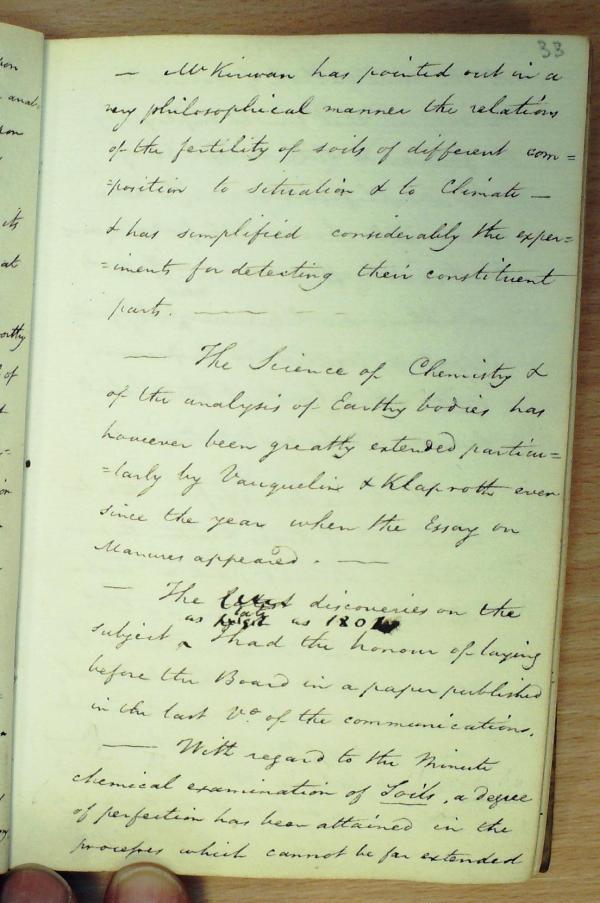 33
— Mr Kirwan has pointed out in a
very philosophical manner the relations
of the fertility of soils of different com=
=position to situation & to Climate —
& has simplified considerably the exper=
=iments for detecting their constituent
parts. —
— The Science of Chemistry &
of the analysis of Earthy bodies has
however been greatly extended particu=
=larly by Vauquelin & Klaproth ever
since the year when the Essay on
Manures appeared. —
— The latest discoveries on the
as late as 1802
subject I had the honour of laying
before the Board in a paper published
in the last Vo. of the communications.
— With regard to the Minute
chemical examination of Soils, a degree
of perfection has been attained in the
processes which cannot be far extended